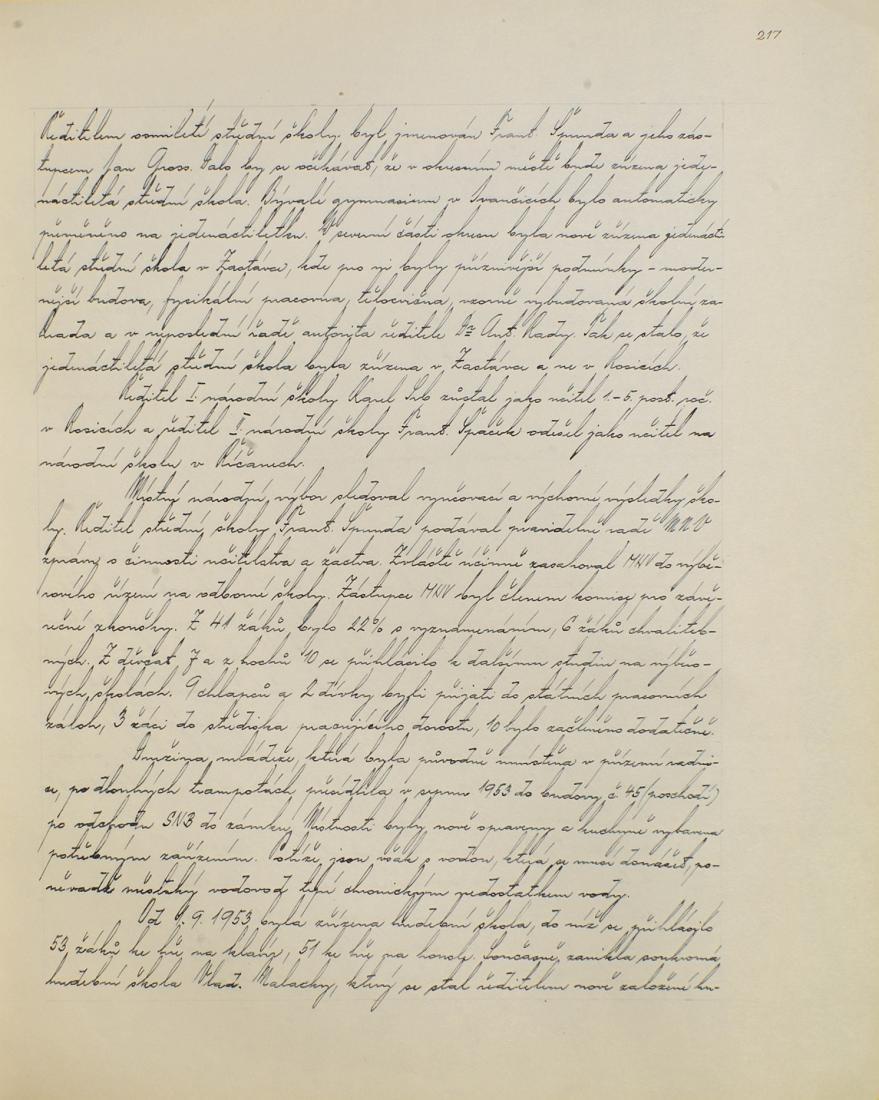 217
Ředitelem osmileté střední školy byl jmenován Frant. Špunda a jeho zás-
tupcem Jan Gross. Dalo by se očekávat, že v okresním městě bude zřízena jede-
náctiletá střední škola. Bývalé gymnasium v Ivančicích bylo automaticky
přeměněno na jedenáctiletku. V severní části okresu byla nově zřízena jedenácti
letá střední škola v Zastávce, kde pro ni byly příznivější podmínky – moder-
nější budova, fysikální pracovna, tělocvična, vzorně vybudovaná školní za-
hrada a v neposlední řadě autorita ředitele Dr Ant. Rady. Tak se stalo, že
jedenáctiletá střední škola byla zřízena v Zastávce a ne v Rosicích.
Ředitel I. národní školy Karel Srb zůstal jako učitel 1.-5. post. roč.
v Rosicích a ředitel II. národní školy Frant. Špaček odešel jako učitel na
národní školu v Říčanech.
Místní národní výbor sledoval vyučovací a výchovné výsledky ško-
ly. Ředitel střední školy Frant. Špunda podával pravidelně radě MNV
zprávy o činnosti učitelstva a žactva. Zvláště účinně zasahoval MNV do výbě-
rového řízení na odborné školy. Zástupce MNV byl členem komise pro závě-
rečné zkoušky. Z 41 žáků bylo 22% s vyznamenáním, 6 žáků chvaliteb-
ných. Z děvčat 7 a z hochů 10 se přihlásilo k dalšímu studiu na výběro-
vých školách. 9 chlapců a 2 dívky byli přijati do státních pracovních
záloh, 3 žáci do střediska pracujícího dorostu, 10 bylo začleněno dodatečně.
Družina mládeže, která byla původně umístěna v přízemí radni-
ce, po dlouhých trampotách přesídlila v srpnu 1953 do budovy č. 45 (poschodí)
po odchodu SNB do zámku. Místnosti byly nově opraveny a kuchyně vybavena
potřebným zařízením. Potíže jsou však s vodou, která se musí donášet, po-
něvadž městský vodovod trpí chronickým nedostatkem vody.
Od 1. 9. 1953 byla zřízena hudební škola, do níž se přihlásilo
53 žáků ke hře na klavír, 51 ke hře na housle. Současně zanikla soukromá
hudební škola Vlad. Malachy, který se stal ředitelem nově založené hu-